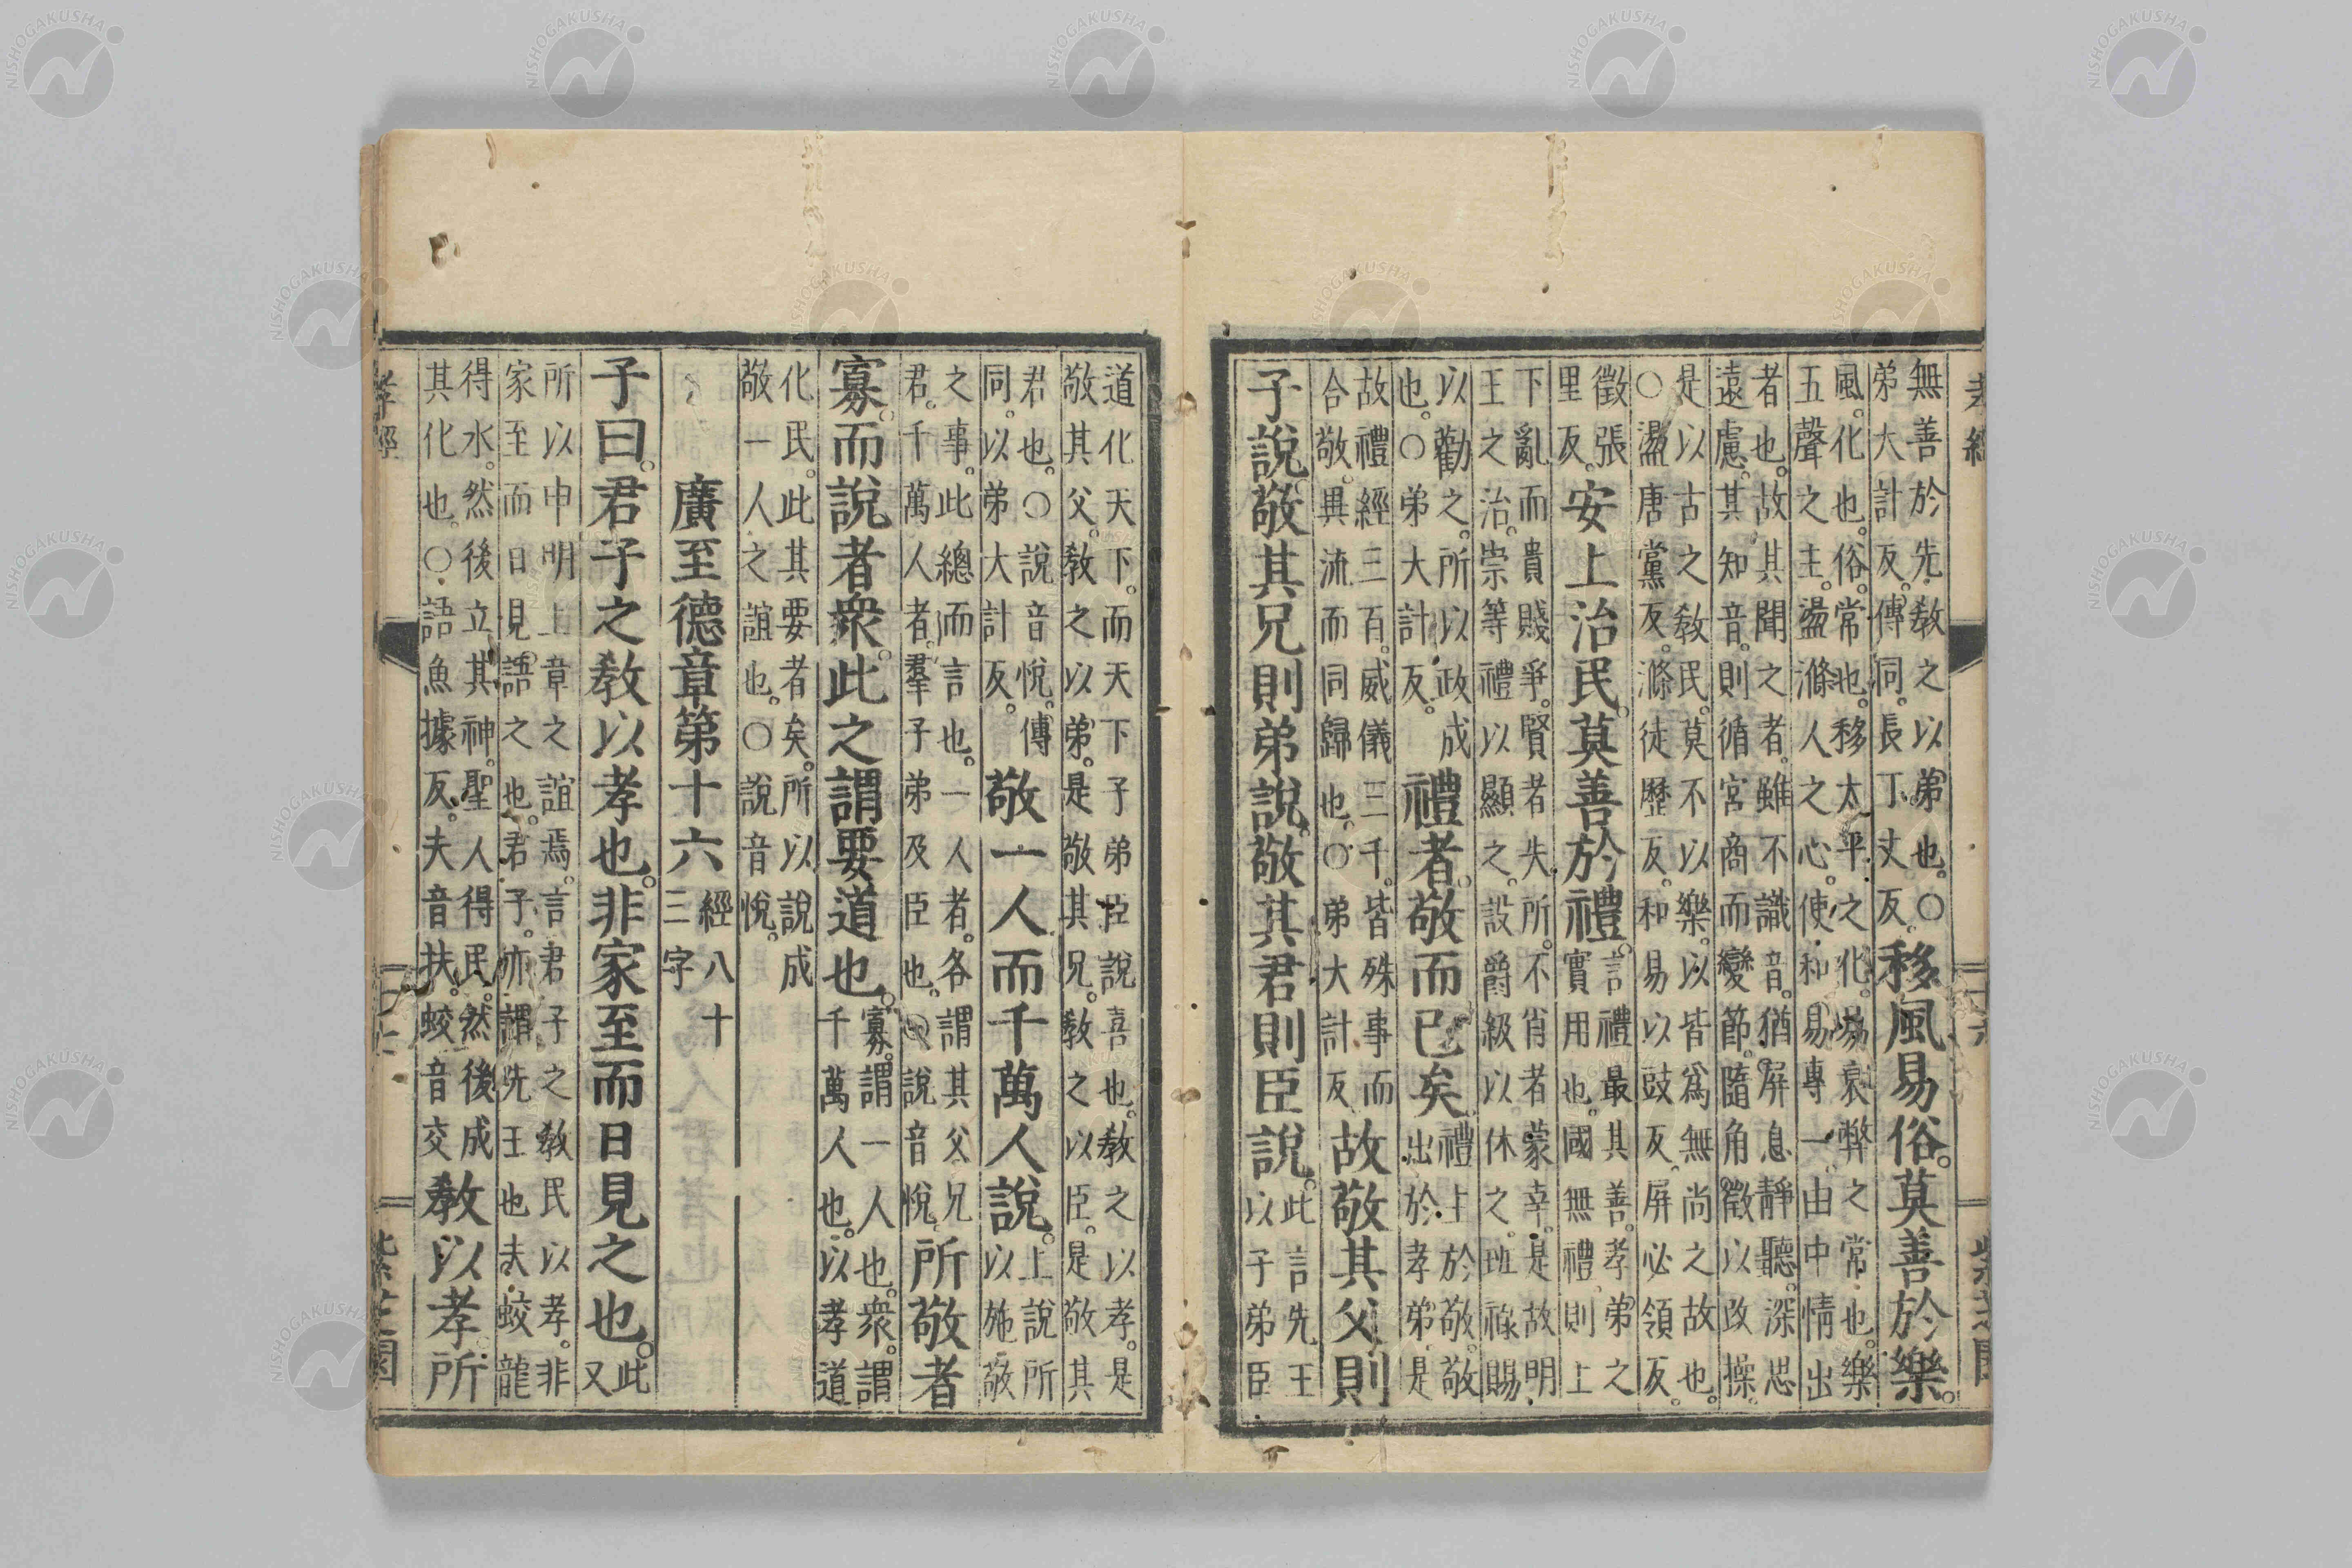 孝經
十六
紫芝園
無善於先教之以弟也。○
弟大計反。傳同。長丁丈反。
移風易俗。莫善於樂。
風。化也。俗。常也。移太平之化。易衰弊之常也。樂
五聲之主。盪滌人之心。使和易專一。由中情出
者也。故其聞之者。雖不識音。猶屏息靜聽。深思
遠慮。其知音。則循宮商而變節。隨角徵以改操。
是以古之教民。莫不以樂。以皆爲無尚之故也。
○盪唐黨反。滌徒歷反。和易以豉反。屏必領反。
徵張
里反。
安上治民。莫善於禮。
言禮最其善。孝弟之
實用也。國無禮。則上
下亂而貴賤爭。賢者失所。不肖者蒙幸。是故明
王之治。崇等禮以顯之。設爵級以休之。班祿賜
以勸之。所以政成
也。○弟大計反。
禮者。敬而已矣。
禮上於敬。敬
出於孝弟。是
故禮經三百。威儀三千。皆殊事而
合敬。異流而同歸也。○弟大計反
故敬其父則
子說。敬其兄則弟說。敬其君則臣說。
此言先王
以子弟臣
道化天下。而天下子弟臣說喜也。教之以孝。是
敬其父。教之以弟。是敬其兄。教之以臣。是敬其
君也。○說音悅。傳
同。以弟大計反。
敬一人而千萬人說。
上說所
以施敬
之事。此總而言也。一人者。各謂其父兄
君。千萬人者。羣子弟及臣也。○說音悅。
所敬者
寡。而說者衆。此之謂要道也。
寡。謂一人也。衆。謂
千萬人也。以孝道
化民。此其要者矣。所以說成
敬一人之誼也。○說音悅。
廣至德章第十六
經八十
三字
子曰。君子之教以孝也。非家至而日見之也。
此
又
所以申明上章之誼焉。言君子之教民以孝。非
家至而日見語之也。君子。亦謂先王也。夫蛟龍
得水。然後立其神。聖人得民。然後成
其化也。○語魚據反。夫音扶。蛟音交
教以孝。所
孝經
十七
紫芝園